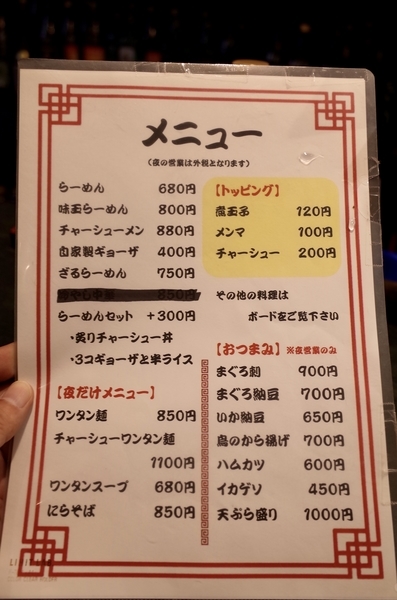 メニュー
(夜の営業は外税となります)
らーめん 680円
味玉らーめん 800円
チャーシューメン 880円
自家製ギョーザ 400円
ざるらーめん 750円
850円
らーめんセット +300円
・炙りチャーシュー丼
・3コギョーザと半ライス
【夜だけメニュー】
ワンタン麺 850円
チャーシューワンタン麺
1100円
ワンタンスープ 680円
にらそば 850円
【トッピング】
煮玉子 120円
メンマ 100円
チャーシュー 200円
その他の料理は
ボードをご覧下さい
【おつまみ】※夜営業のみ
まぐろ刺 900円
まぐろ納豆 700円
いか納豆 650円
鳥のから揚げ 700円
ハムカツ 600円
イカゲソ 450円
天ぷら盛り 1000円